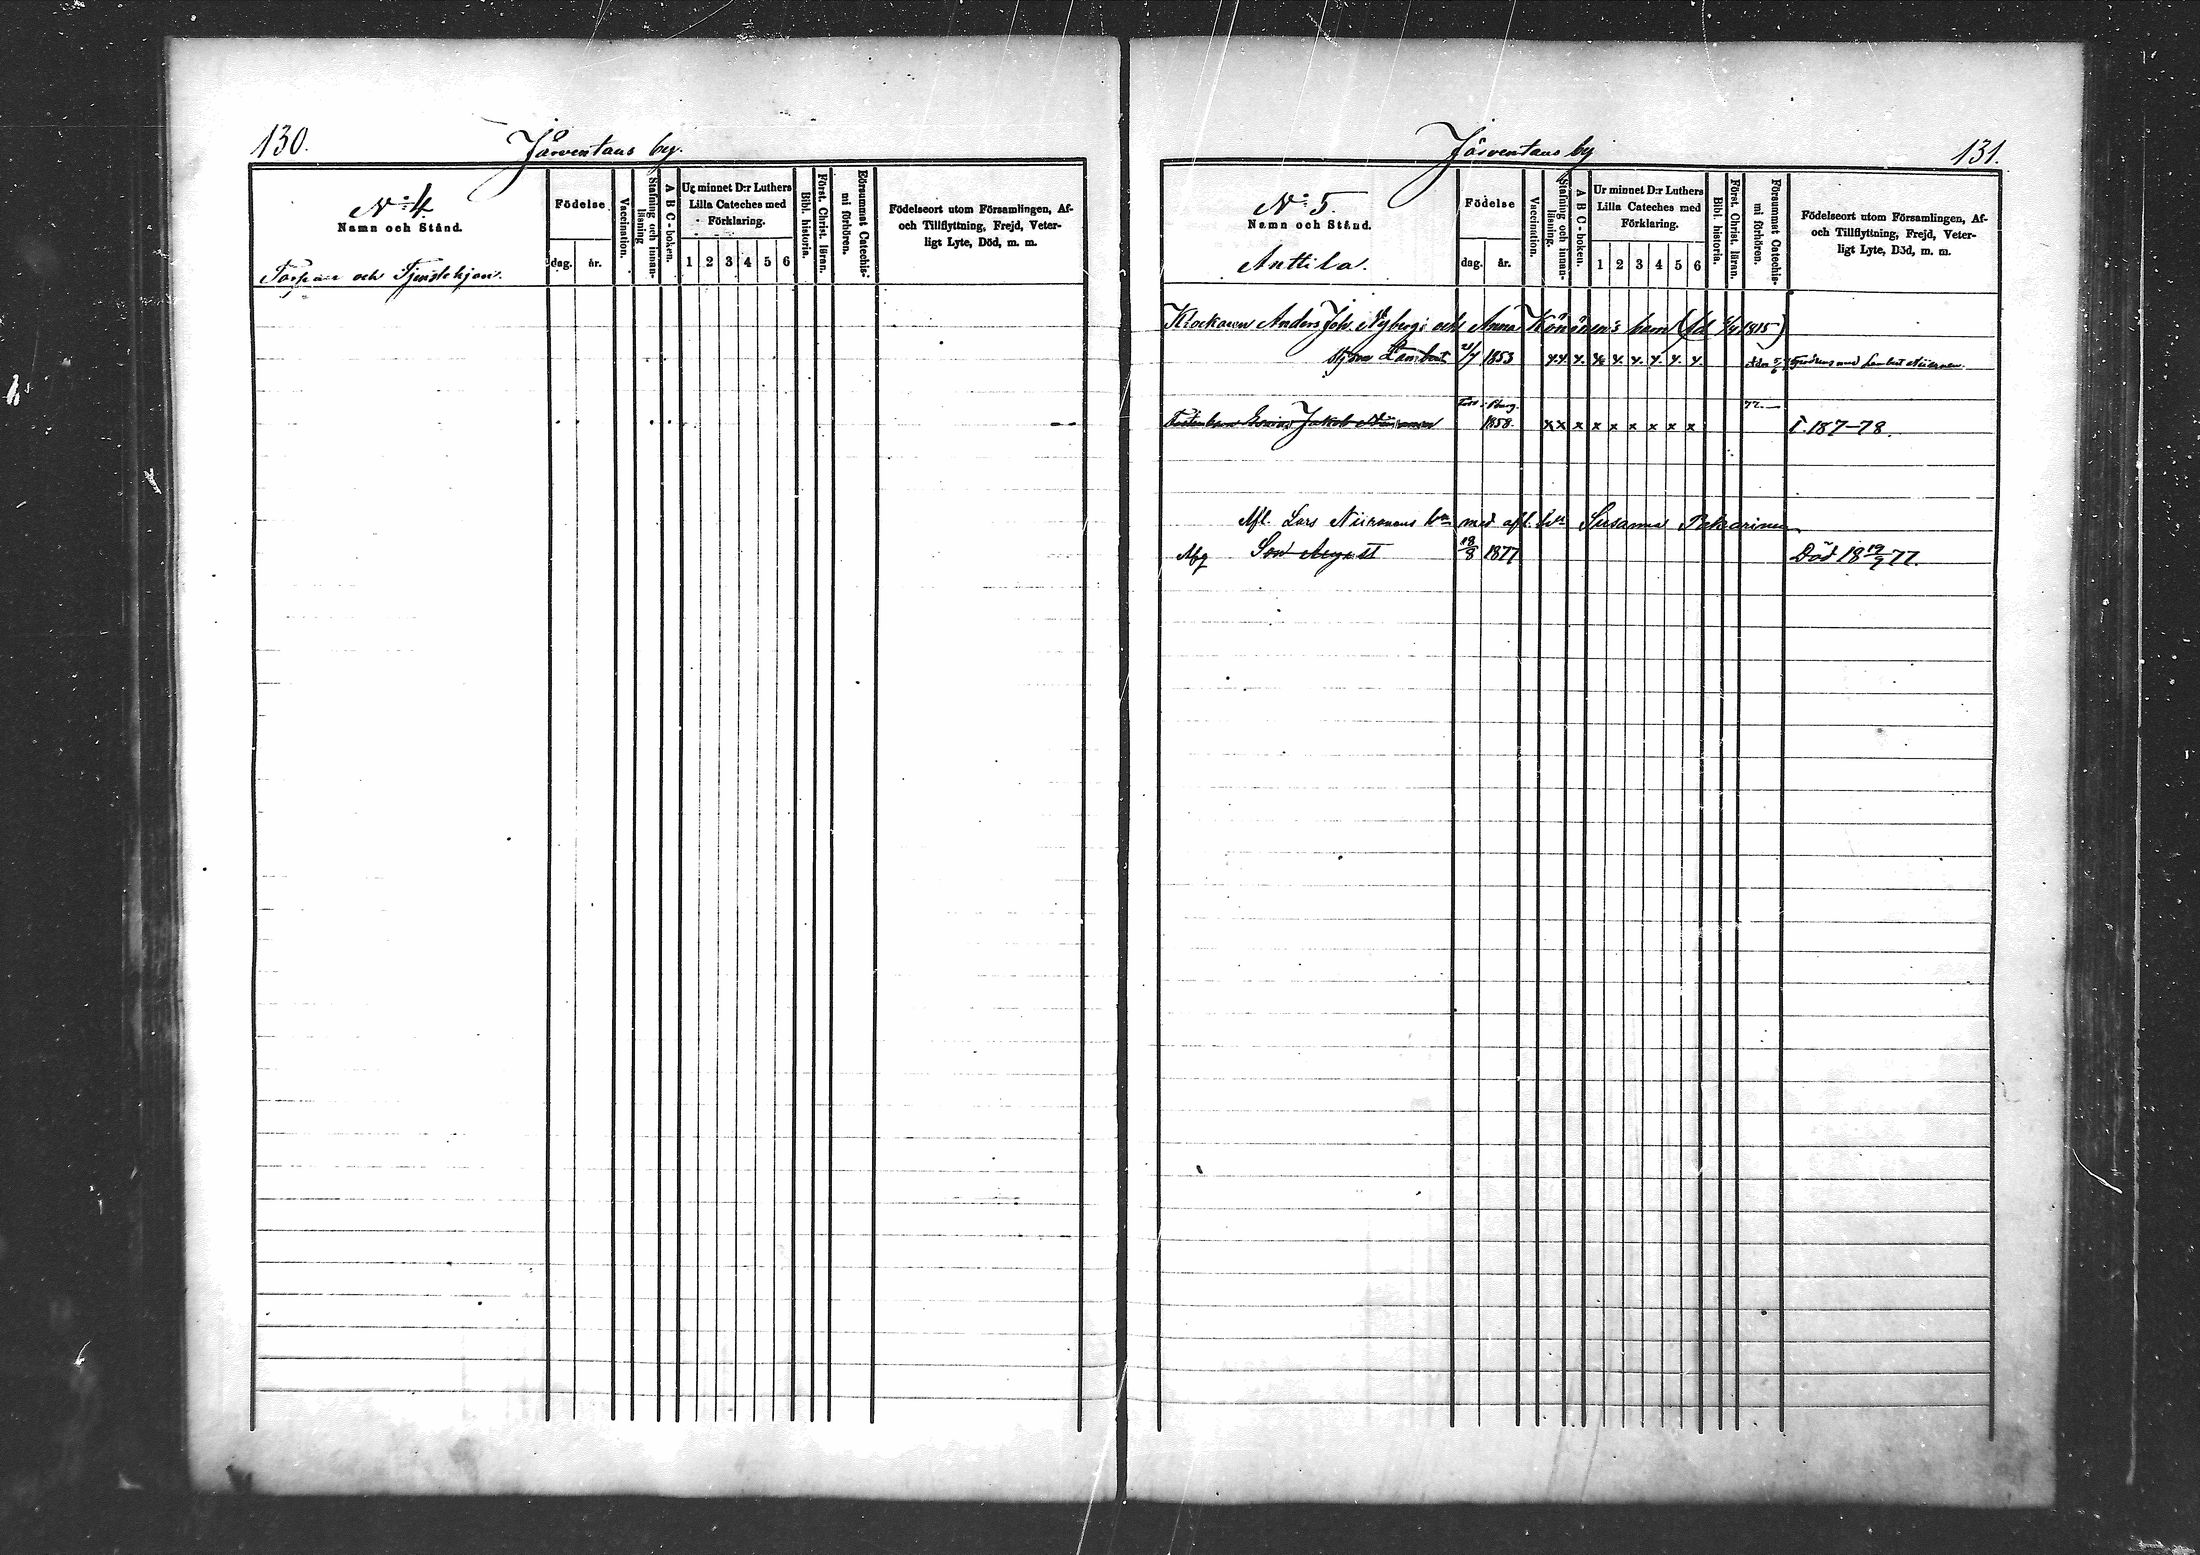 130.
Järventaus by.
N:o 4.
Namn och Stånd.
Torpare och Tjenstehjon.
Födelse
dag. år.
Vaccination.
Stafning och innan-
läsning
A B C-boken.
Ur minnet D:r Luthers
Lilla Cateches med
Förklaring.
1 2 3 4 5 6
Bibl. historia.
Först. Christ. läran.
Försummat Catechis-
mi förhören.
Födelseort utom Församlingen, Af-
och Tillflyttning, Frejd, Veter-
ligt Lyte, Död, m. m.
Järventaus by
131.
N:o 5.
Namn och Stånd.
Anttila.
Födelse
dag. år.
Vaccination.
Stafning och innan-
läsning.
A B C-boken.
Ur minnet D:r Luthers
Lilla Cateches med
Förklaring.
1 2 3 4 5 6
Bibl. historia.
Först. Christ. läran.
Försummat Catechis-
mi förhören.
Födelseort utom Församlingen, Af-
och Tillflyttning, Frejd, Veter-
ligt Lyte, Död, m. m.
Klockaren Anders Joh. Nybergs och Anna Könönen's barn (fd 1815)
Lambert 1853 med Lambert Niiranen.
Jakob Niiranen 1858. x x x x x x x x x 77.— T. 187-78.
Afl. Lars Niiranens med afl. Susanna Pekarinen
Son August 18/8 1877 Död 18 19/9 77.